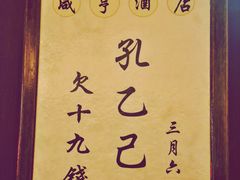 咸亨酒店
孔乙己
欠十九錢
三月六